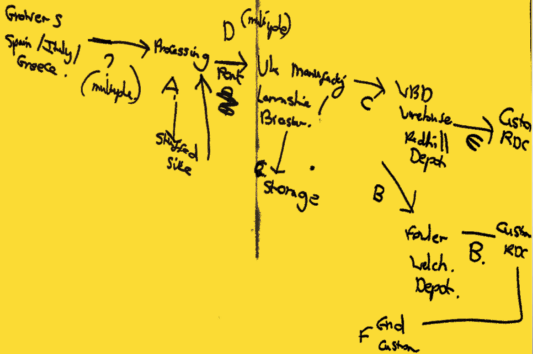 Growers
Spain/Italy/
Greece.
?
(multiple)
Processing
A
Stuffed
Size
D (multiple)
Port
Uk Manufacturing
Brixton.
Storage
C
VBD
Warehouse
Redhill
Depot
E
Custom
RDC
B
Fowler
Welch.
Depot.
B.
Custom
RDC
F End
Custom